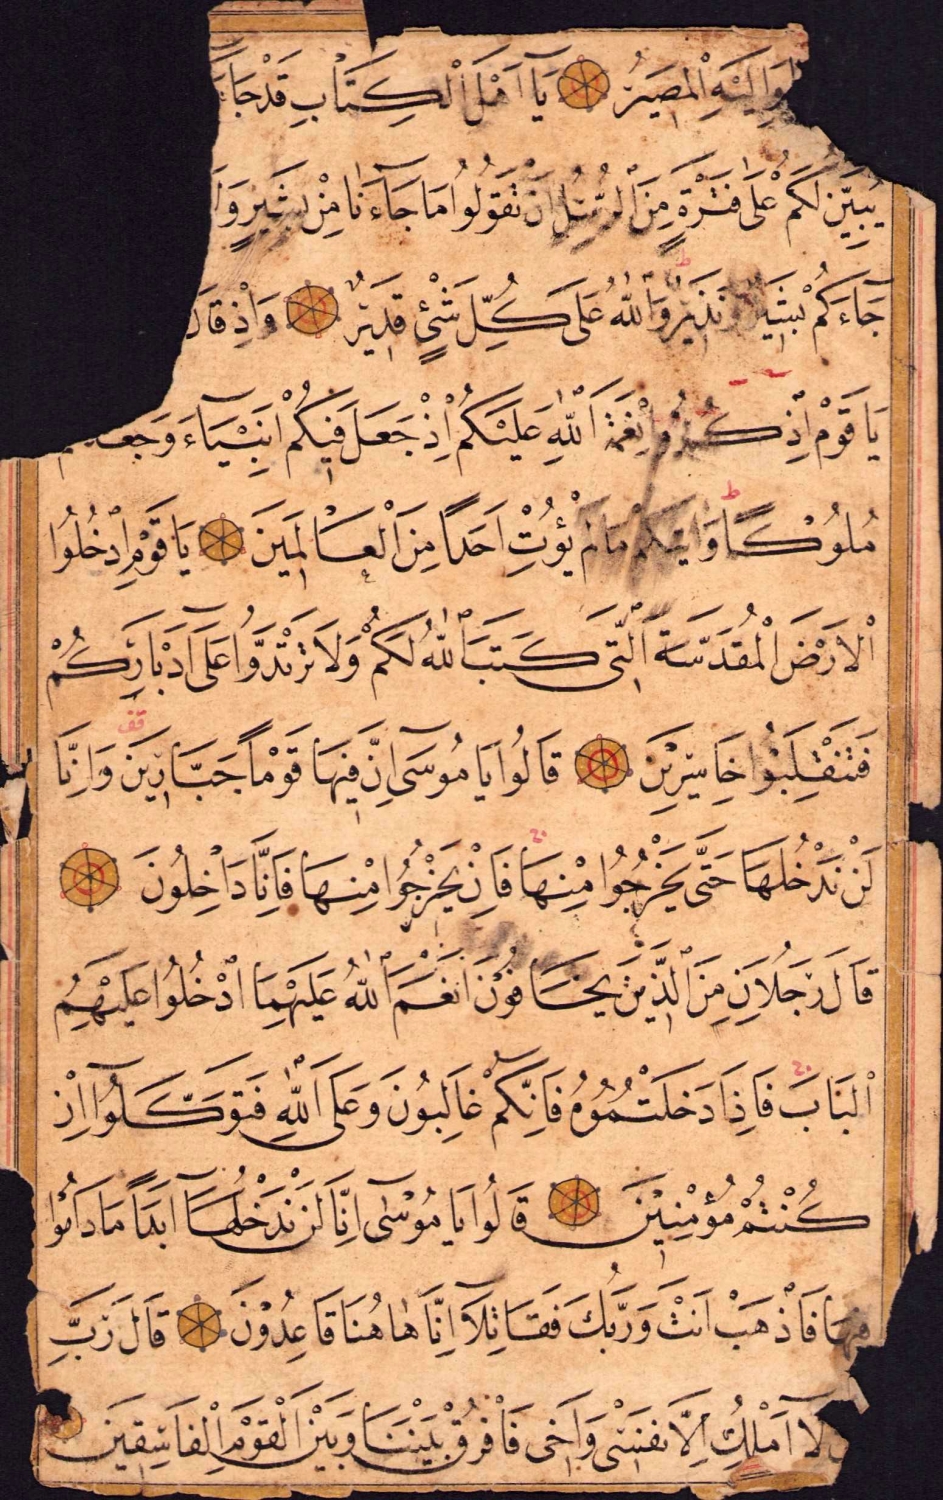 وَاِلَيْهِ الْمَصِيرُ يَآ اَهْلَ الْكِتَابِ قَدْ جَآءَ
يُبَيِّنُ لَكُمْ عَلَى فَتْرَةٍ مِنَ الرُّسُلِ اَنْ تَقُولُوا مَا جَآءَنَا مِنْ بَشِيرٍ وَلَا
جَآءَكُمْ بَشِيرٌ وَنَذِيرٌ وَاللّٰهُ عَلَى كُلِّ شَيْءٍ قَدِيرٌ وَاِذْ قَالَ
يَا قَوْمِ اذْكُرُوا نِعْمَةَ اللّٰهِ عَلَيْكُمْ اِذْ جَعَلَ فِيكُمْ اَنْبِيَآءَ وَجَعَلَكُمْ
مُلُوكًا وَاٰتَيكُمْ مَا لَمْ يُؤْتِ اَحَدًا مِنَ الْعَالَمِينَ يَا قَوْمِ ادْخُلُوا
الْاَرْضَ الْمُقَدَّسَةَ الَّتِى كَتَبَ اللّٰهُ لَكُمْ وَلَا تَرْتَدُّوا عَلَى اَدْبَارِكُمْ
فَتَنْقَلِبُوا خَاسِرِينَ قَالُوا يَا مُوسَى اِنَّ فِيهَا قَوْمًا جَبَّارِينَ وَاِنَّا
لَنْ نَدْخُلَهَا حَتَّى يَخْرُجُوا مِنْهَا فَاِنْ يَخْرُجُوا مِنْهَا فَاِنَّا دَاخِلُونَ
قَالَ رَجُلَانِ مِنَ الَّذِينَ يَخَافُونَ اَنْعَمَ اللّٰهُ عَلَيْهِمَا ادْخُلُوا عَلَيْهِمُ
الْبَابَ فَاِذَا دَخَلْتُمُوهُ فَاِنَّكُمْ غَالِبُونَ وَعَلَى اللّٰهِ فَتَوَكَّلُوا اِنْ
كُنْتُمْ مُؤْمِنِينَ قَالُوا يَا مُوسَى اِنَّا لَنْ نَدْخُلَهَآ اَبَدًا مَا دَامُوا
فِيهَا فَاذْهَبْ اَنْتَ وَرَبُّكَ فَقَاتِلَا اِنَّا هَاهُنَا قَاعِدُونَ قَالَ رَبِّ
لَا اَمْلِكُ اِلَّا نَفْسِى وَاَخِى فَافْرُقْ بَيْنَنَا وَبَيْنَ الْقَوْمِ الْفَاسِقِينَ